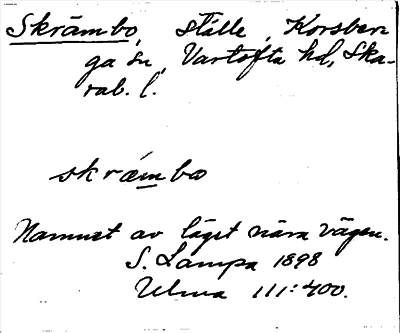 Skrämbo, ställe, Korsber-
ga sn, Vartofta hd, Ska-
rab. l.
skræmbo
Namnet av läget nära vägen.
S. Lampa 1898
Ulma 111:400.